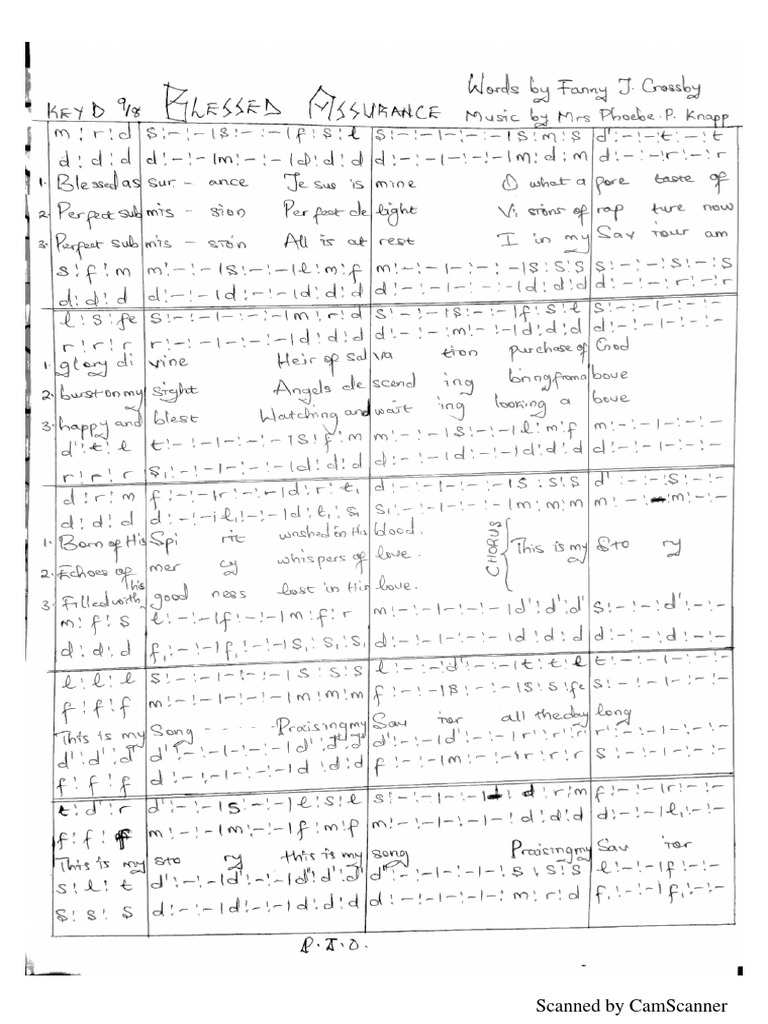 KEY D 9/8 BLESSED ASSURANCE Words by Fanny J. Crossby
Music by Mrs Phoebe. P. Knapp
m : r : d | s : - : - | s : - : - | f : s : l | s : - : - | - : - : - | s : m : s | d' : - : - | t : - : t
d : d : d | d : - : - | m : - : - | d : d : d | d : - : - | - : - : - | m : d : m | d : - : - | r : - : r
1. Blessed as sur - ance Jesus is mine O what a fore taste of
2. Perfect sub mis - sion Perfect de light Visions of rap ture now
3. Perfect sub mis - sion All is at rest I in my Saviour am
s : f : m | m : - : - | s : - : - | l : m : f | m : - : - | - : - : - | s : s : s | s : - : - | s : - : s
d : d : d | d : - : - | d : - : - | d : d : d | d : - : - | - : - : - | d : d : d | d : - : - | r : - : r
l : s : fe | s : - : - | - : - : - | m : r : d | s : - : - | s : - : - | f : s : l | s : - : - | - : - : -
r : r : r | r : - : - | - : - : - | d : d : d | d : - : - | m : - : - | d : d : d | d : - : - | - : - : -
1. glory di vine Heir of sal va tion purchase of God
2. burst on my sight Angels de scend ing bring from a bove
3. happy and blest Watching and wait ing looking a bove
d' : t : l | t : - : - | - : - : - | s : f : m | m : - : - | s : - : - | l : m : f | m : - : - | - : - : -
r : r : r | s₁ : - : - | - : - : - | d : d : d | d : - : - | d : - : - | d : d : d | d : - : - | - : - : -
d : r : m | f : - : - | r : - : - | d : r : t₁ | d : - : - | - : - : - | s : s : s | d' : - : - | s : - : -
d : d : d | d : - : - | l₁ : - : - | d : l₁ : s₁ | s₁ : - : - | - : - : - | m : m : m | m : - : - | m : - : -
1. Born of His Spi rit washed in His blood. CHORUS { This is my Sto ry
2. Echoes of mer cy whispers of love.
3. Filled with His good ness lost in His love.
m : f : s | l : - : - | f : - : - | m : f : r | m : - : - | - : - : - | d' : d' : d' | s : - : - | d' : - : -
d : d : d | f₁ : - : - | f₁ : - : - | s₁ : s₁ : s₁ | d : - : - | - : - : - | d : d : d | d : - : - | d : - : -
l : l : l | s : - : - | - : - : - | s : s : s | l : - : - | d' : - : - | t : t : l | t : - : - | - : - : -
f : f : f | m : - : - | - : - : - | m : m : m | f : - : - | s : - : - | s : s : fe | s : - : - | - : - : -
This is my Song - - - - - Praising my Sav ior all the day long
d' : d' : d' | d' : - : - | - : - : - | d' : d' : d' | d' : - : - | d' : - : - | r' : r' : r' | r' : - : - | - : - : -
f : f : f | d : - : - | - : - : - | d : d : d | f : - : - | m : - : - | r : r : r | s : - : - | - : - : -
t : d' : r | d' : - : - | s : - : - | l : s : l | s : - : - | - : - : - | d : r : m | f : - : - | r : - : -
f : f : f | m : - : - | m : - : - | f : m : f | m : - : - | - : - : - | d : d : d | d : - : - | l₁ : - : -
This is my sto ry this is my song Praising my Sav ior
s : l : t | d' : - : - | d' : - : - | d' : d' : d' | d' : - : - | - : - : - | s : s : s | l : - : - | f : - : -
s : s : s | d : - : - | d : - : - | d : d : d | d : - : - | - : - : - | m : r : d | f₁ : - : - | f₁ : - : -
P.T.O.
Scanned by CamScanner